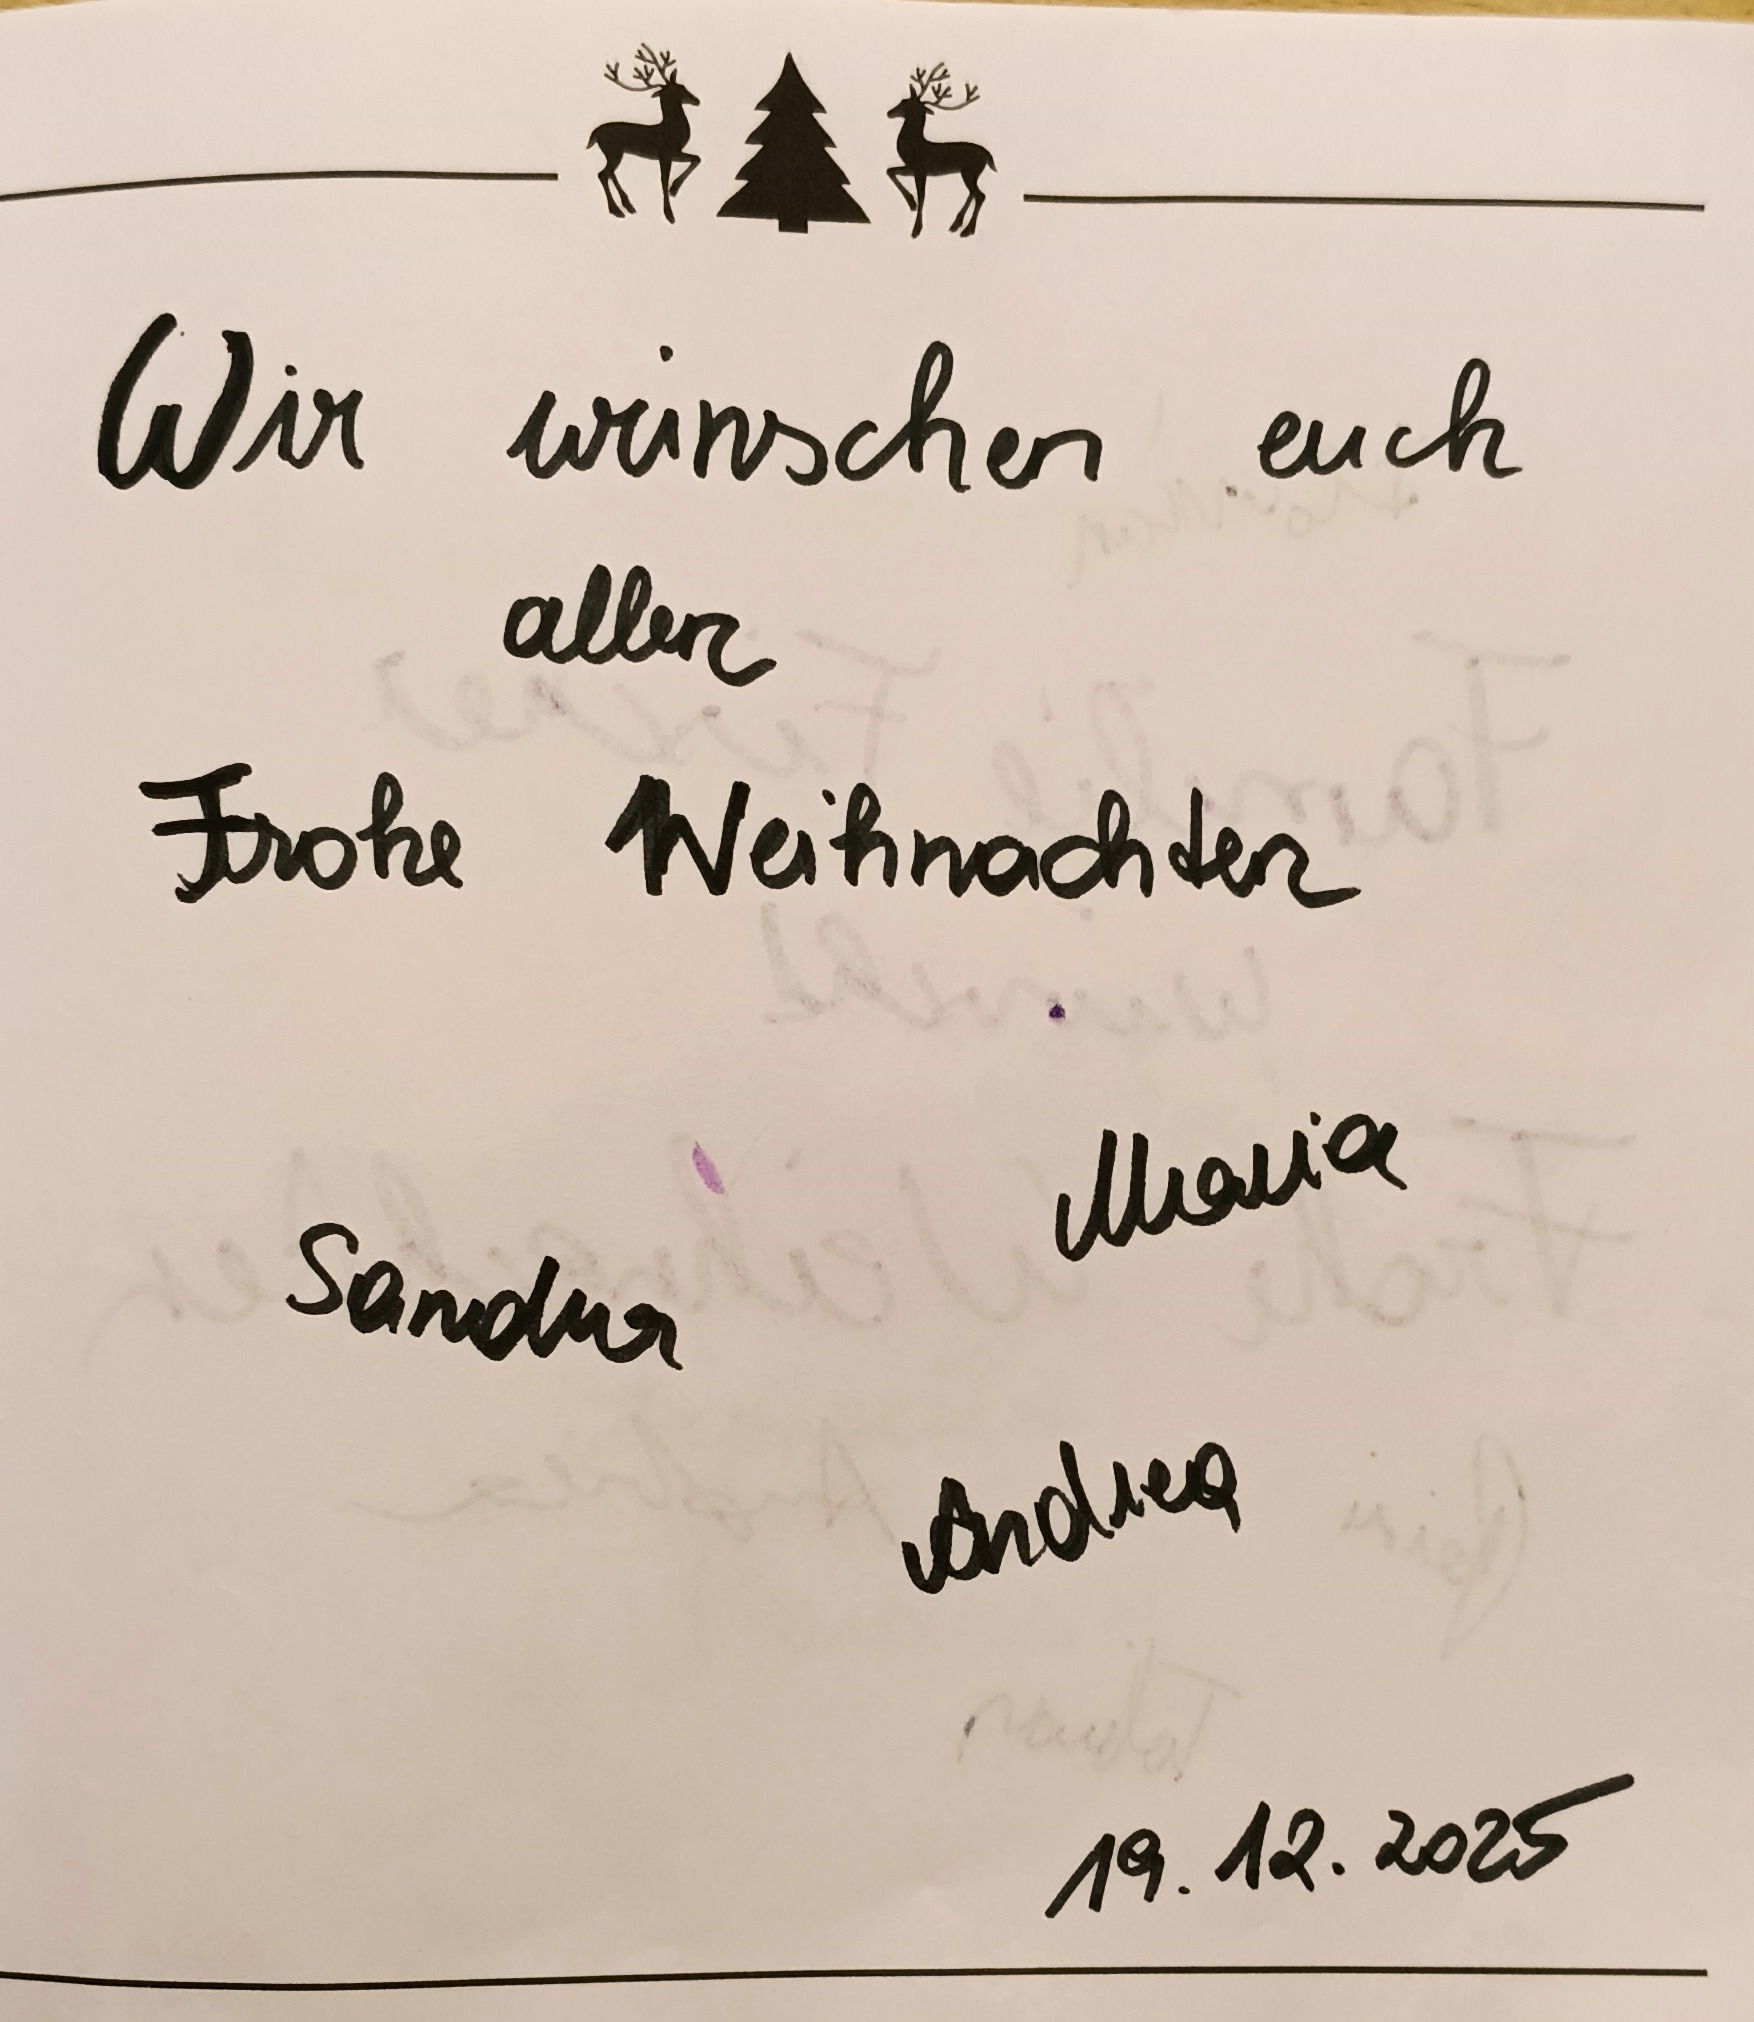 Wir wünschen euch
allen
Frohe Weihnachten
Maria
Sandra
Andrea
19.12.2025